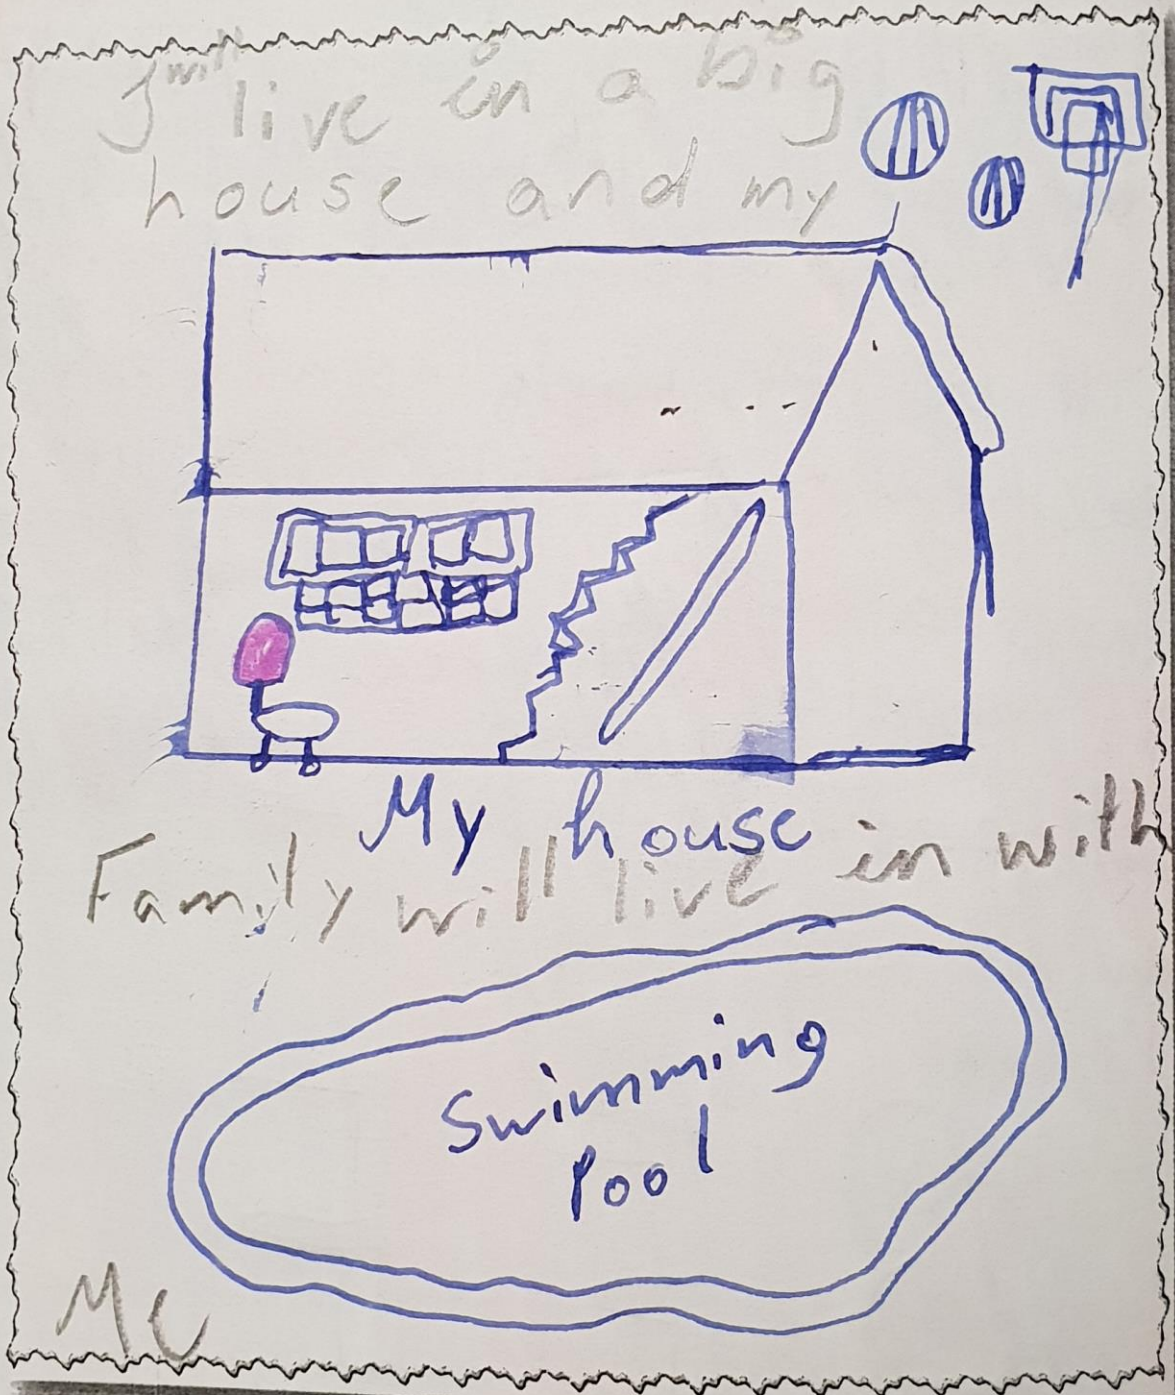 I will live in a big
house and my
My house
Family will live in with
Swimming
Pool
Me